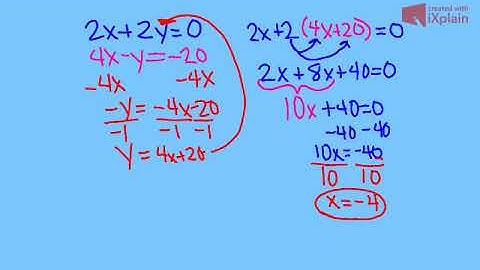 created with
iXplain
2x+2y=0
4x-y=-20
-4x -4x
-y=-4x-20
-1 -1 -1
y=4x+20
2x+2(4x+20)=0
2x+8x+40=0
10x+40=0
-40 -40
10x=-40
10 10
x=-4